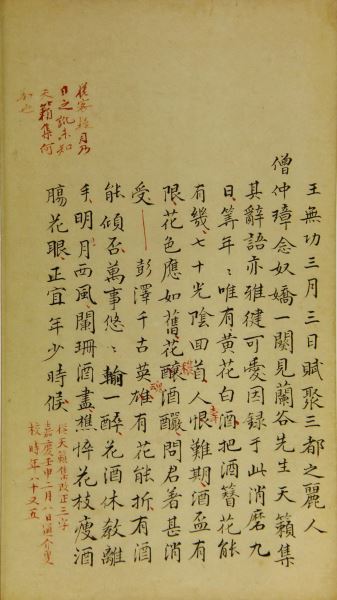 王無功三月三日賦聚三都之麗人
僧仲璋念奴嬌一闋見蘭谷先生天籟集
其辭語亦雅健可愛因録于此消磨九
日筭年〻唯有黄花白酒把酒簪花能
有幾七十光陰回首人恨難期酒盃有
限花色應如舊花釀酒釅問君著甚消
受 彭澤千古英雄有花能折有酒
能傾否萬事悠〻輸一醉花酒休教離
手明月西風闌珊酒盡憔悴花枝瘦酒
腸花眼正宜年少時候
從天籟集改正三字
嘉慶壬申二月八日通介叟
校時年八十又五
月乃
日之訛未知
天籟集何
如也